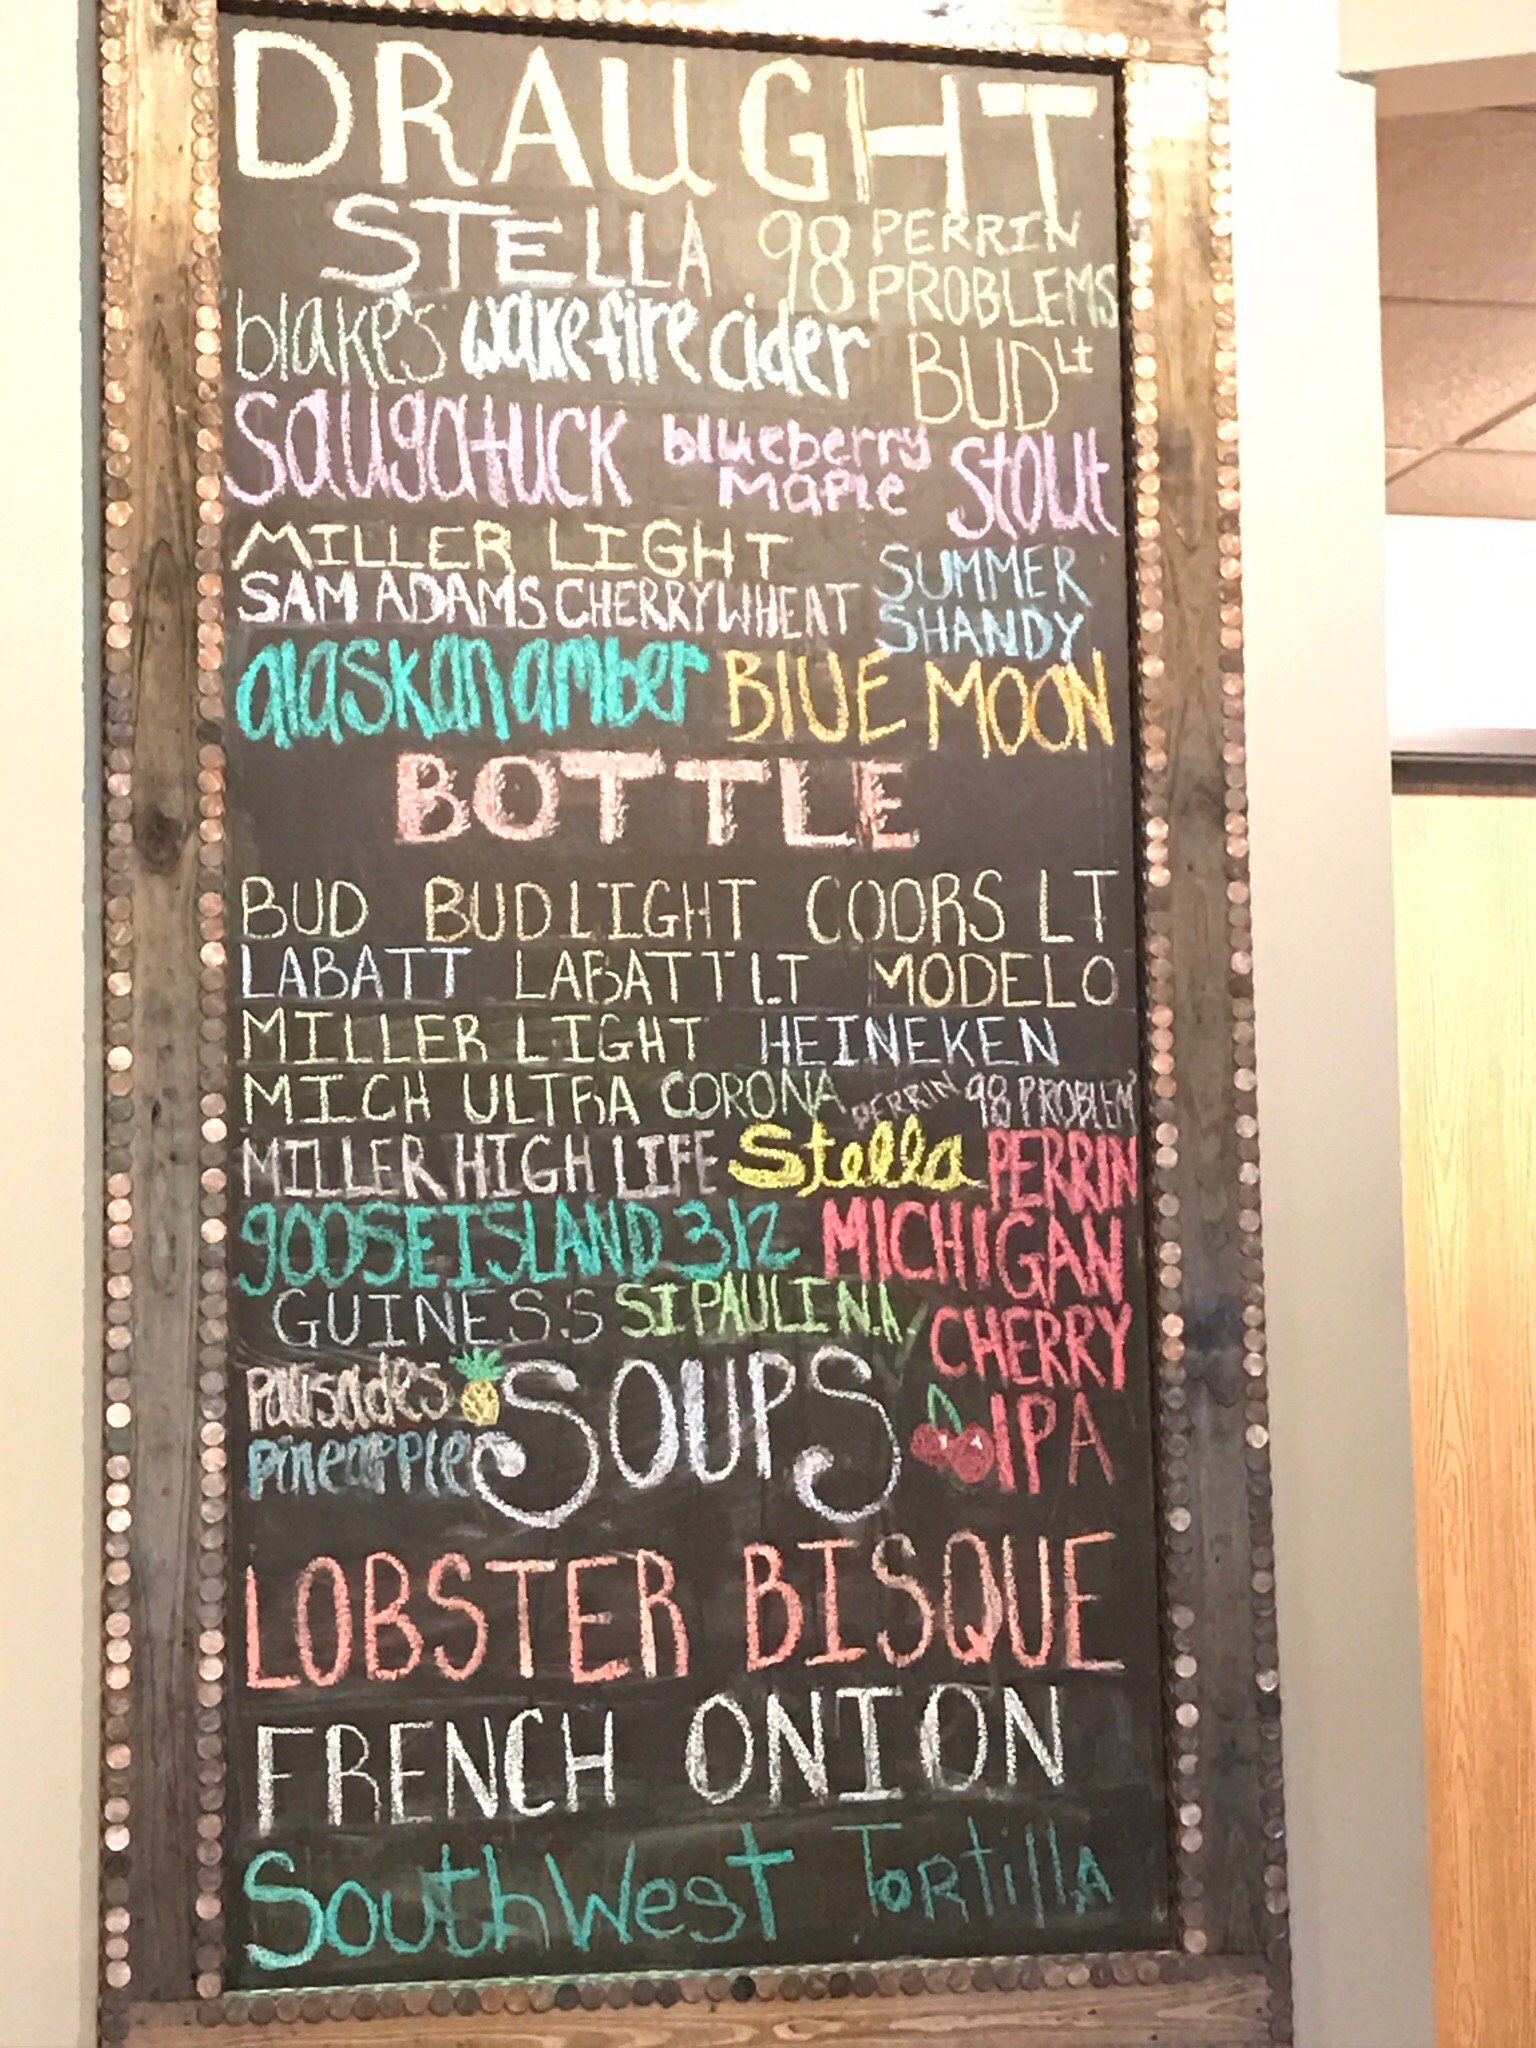 DRAUGHT
STELLA 98 PERRIN PROBLEMS
blake's wakefire cider BUD Lt
Saugatuck blueberry Maple Stout
MILLER LIGHT
SAM ADAMS CHERRY WHEAT SUMMER SHANDY
alaskan amber BLUE MOON
BOTTLE
BUD BUD LIGHT COORS LT
LABATT LABATT LT MODELO
MILLER LIGHT HEINEKEN
MICH ULTRA CORONA PERRIN 98 PROBLEM
MILLER HIGH LIFE Stella
gOOSE ISLAND 312
PERRIN MICHIGAN CHERRY IPA
GUINESS ST PAULI N.A.
Palisades pineapple
SOUPS
LOBSTER BISQUE
FRENCH ONION
SouthWest Tortilla